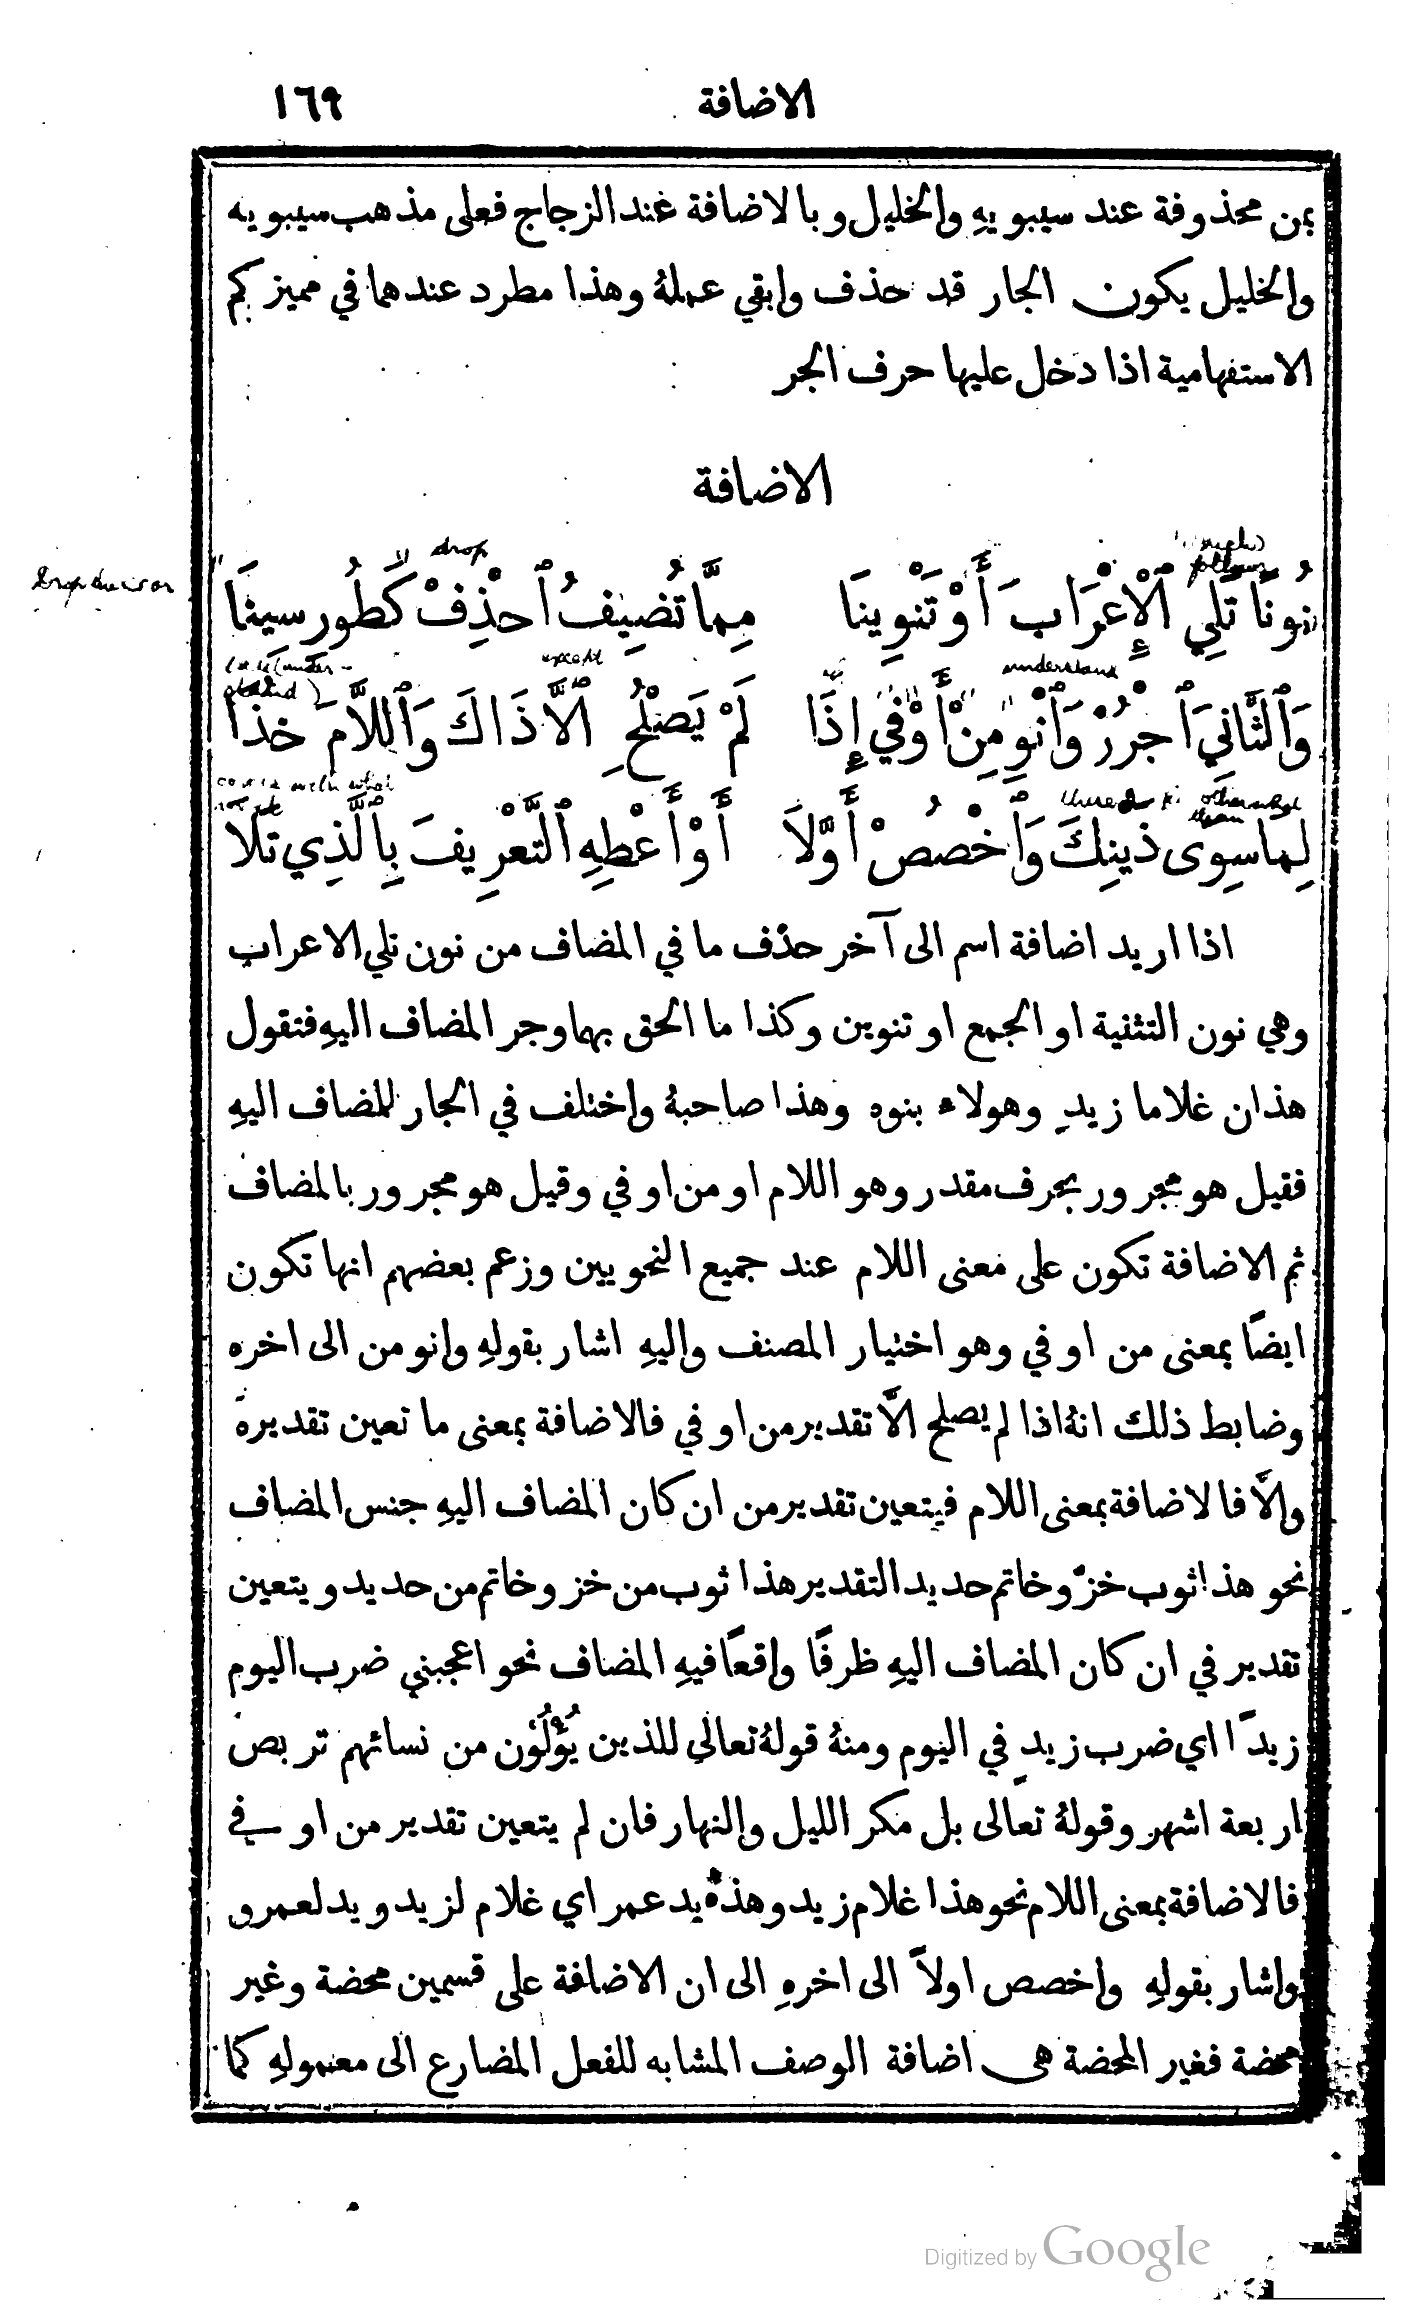 الاضافة ١٦٩
بمن محذوفة عند سيبويهِ والخليل وبالاضافة عند الزجاج فعلى مذهب سيبويه
والخليل يكون الجار قد حذف وابقي عملهُ وهذا مطرد عندهما في مميز كم
الاستفهامية اذا دخل عليها حرف الجر
الاضافة
drop
follows
نُونًا تَلِي ٱلْإِعْرَابَ أَوْ تَنْوِينَا مِمَّا تُضِيفُ ٱحْذِفْ كَطُورِ سِينَا
under-
stand)
except
understand
وَٱلثَّانِيَ ٱجْرُرْ وَٱنْوِ مِنْ أَوْ فِي إِذَا لَمْ يَصْلُحِ ٱلَّا ذَاكَ وَٱللَّامَ خُذَا
لِمَا سِوَى ذَيْنِكَ وَٱخْصُصْ أَوَّلَا أَوْ أَعْطِهِ ٱلتَّعْرِيفَ بِٱلَّذِي تَلَا
اذا اريد اضافة اسم الى آخر حذف ما في المضاف من نون تلي الاعراب
وهي نون التثنية او الجمع او تنوين وكذا ما الحق بهما وجر المضاف اليهِ فتقول
هذان غلاما زيدٍ وهولاء بنوه وهذا صاحبهُ واختلف في الجار للمضاف اليهِ
فقيل هو مجرور بحرف مقدر وهو اللام او من او في وقيل هو مجرور بالمضاف
ثم الاضافة تكون على معنى اللام عند جميع النحويين وزعم بعضهم انها تكون
ايضًا بمعنى من او في وهو اختيار المصنف واليهِ اشار بقولهِ وانو من الى اخره
وضابط ذلك انهُ اذا لم يصلح الَّا تقدير من او في فالاضافة بمعنى ما تعين تقديره
والَّا فالاضافة بمعنى اللام فيتعين تقدير من ان كان المضاف اليهِ جنس المضاف
نحو هذا ثوب خزّ وخاتم حديد التقدير هذا ثوب من خز وخاتم من حديد ويتعين
تقدير في ان كان المضاف اليهِ ظرفًا واقعًا فيهِ المضاف نحو اعجبني ضرب اليوم
زيدًا اي ضرب زيدٍ في اليوم ومنهُ قولهُ تعالى للذين يُؤْلُون من نسائهم تربص
اربعة اشهر وقولهُ تعالى بل مكر الليل والنهار فان لم يتعين تقدير من او في
فالاضافة بمعنى اللام نحو هذا غلام زيد وهذه يد عمر اي غلام لزيد ويد لعمرو
واشار بقولهِ واخصص اولاً الى اخرهِ الى ان الاضافة على قسمين محضة وغير
محضة فغير المحضة هي اضافة الوصف المشابه للفعل المضارع الى معمولهِ كما
Digitized by Google